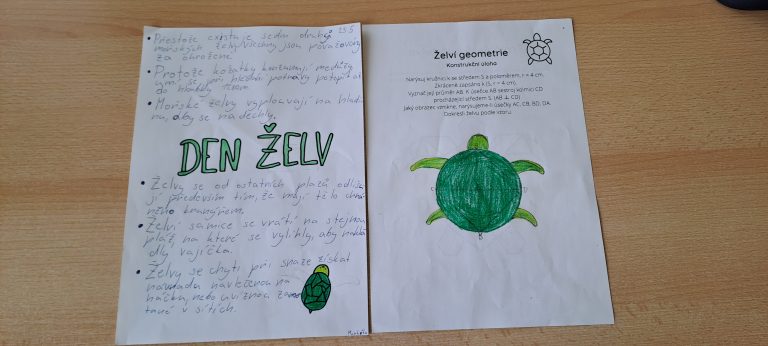 • Přestože existuje sedm druhů 23.5
mořských želv, všechny jsou považovány
za ohrožené.
• Protože kožatky konzumují medúzy
se při hledání potravy potopit až
do hloubky
• Mořské želvy vyplouvají na hladi
nu, aby se nadechly.
DEN ŽELV
• Želvy se od ostatních plazů odlišu
jí především tím, že mají tělo chrá
něného krunýřem.
• Želví samice se vrátí na stejnou
pláž, na které se vylíhly, aby nakla
dly vajíčka.
• Želvy se chytí při snaze získat
návnadu navlečenou na
háčku, nebo uvíznou
tané v sítích.
Želví geometrie
Konstrukční úloha
Narýsuj kružnici k se středem S a poloměrem r = 4 cm.
Zkráceně zapsáno k (S, r = 4 cm).
Vyznač její průměr AB. K úsečce AB sestroj kolmici CD
procházející středem S. (AB ⊥ CD)
Jaký obrazec vznikne, narýsujeme-li úsečky AC, CB, BD, DA.
Dokresli želvu podle vzoru.